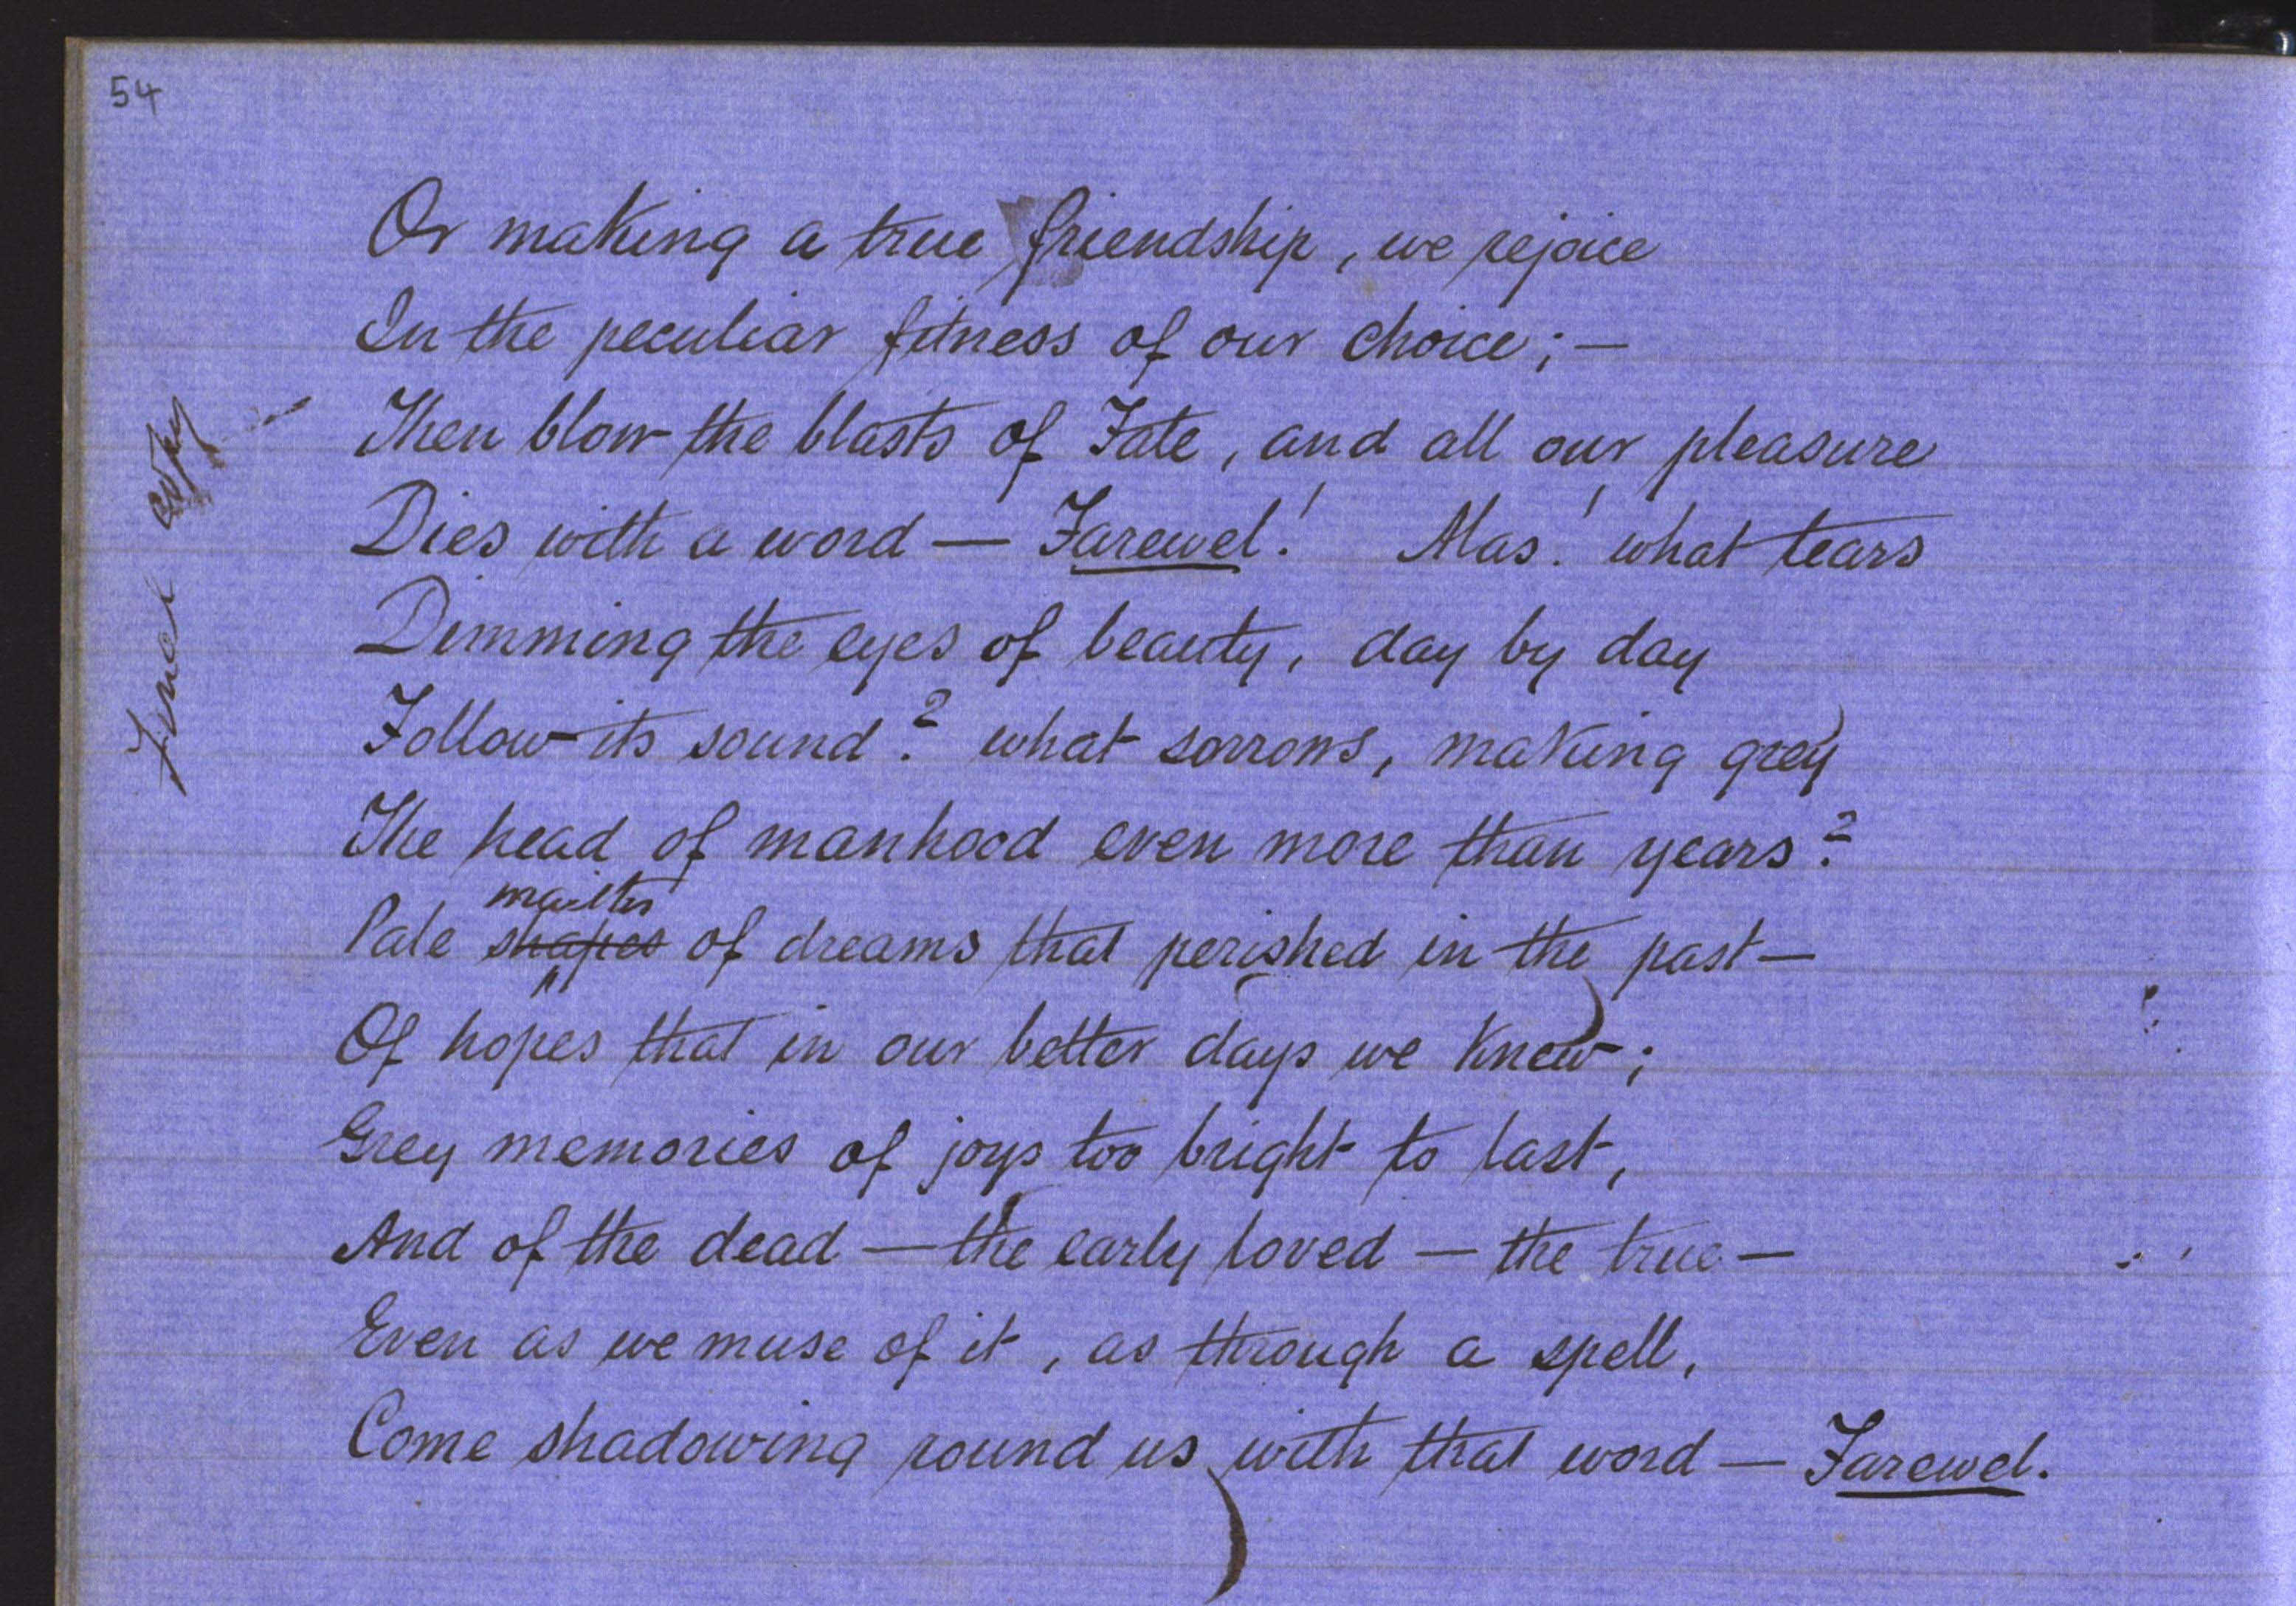 54
Or making a true friendship, we rejoice
In the peculiar fitness of our choice; —
Then blow the blasts of Fate, and all our pleasure
Dies with a word — Farewel! Alas! what tears
Dimming the eyes of beauty, day by day
Follow its sound? what sorrows, making grey
The head of manhood even more than years?
Pale shapes of dreams that perished in the past —
Of hopes that in our better days we knew;
Grey memories of joys too bright to last,
And of the dead — the early loved — the true —
Even as we muse of it, as through a spell,
Come shadowing round us with that word — Farewel.
Final copy